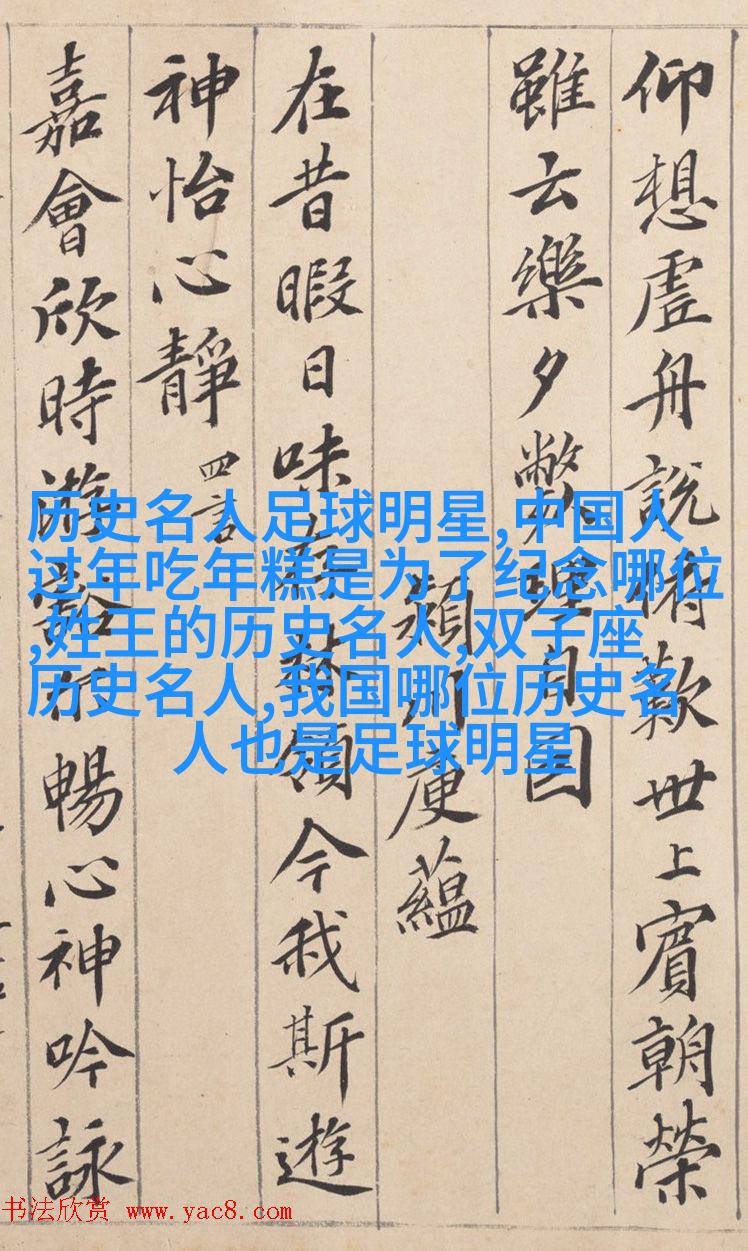 仰想虗舟說俯歎世上賓朝榮
雖云樂夕弊理自囙
潁川庾蘊
在昔暇日味存林嶺今我斯遊
神怡心靜 四言
嘉會欣時游豁尓暢心神吟詠
历史名人足球明星,中国人
过年吃年糕是为了纪念哪位
,姓王的历史名人,双子座
历史名人,我国哪位历史名
人也是足球明星
书法欣赏 www.yac8.com